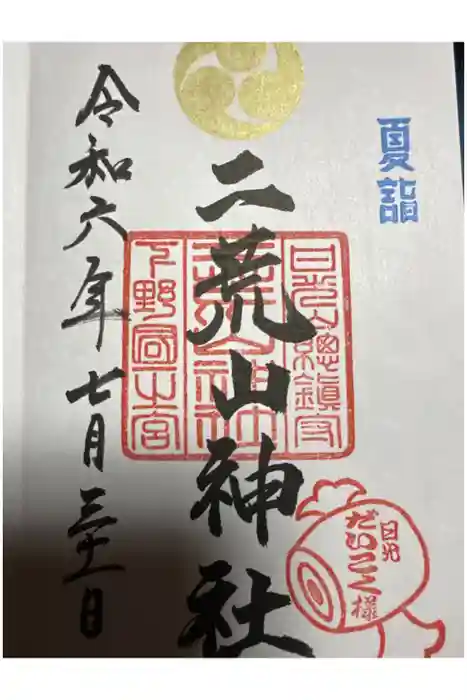 夏詣
二荒山神社
日光山總鎮守
下野國一之宮
日光
だいこく様
令和六年七月三十一日